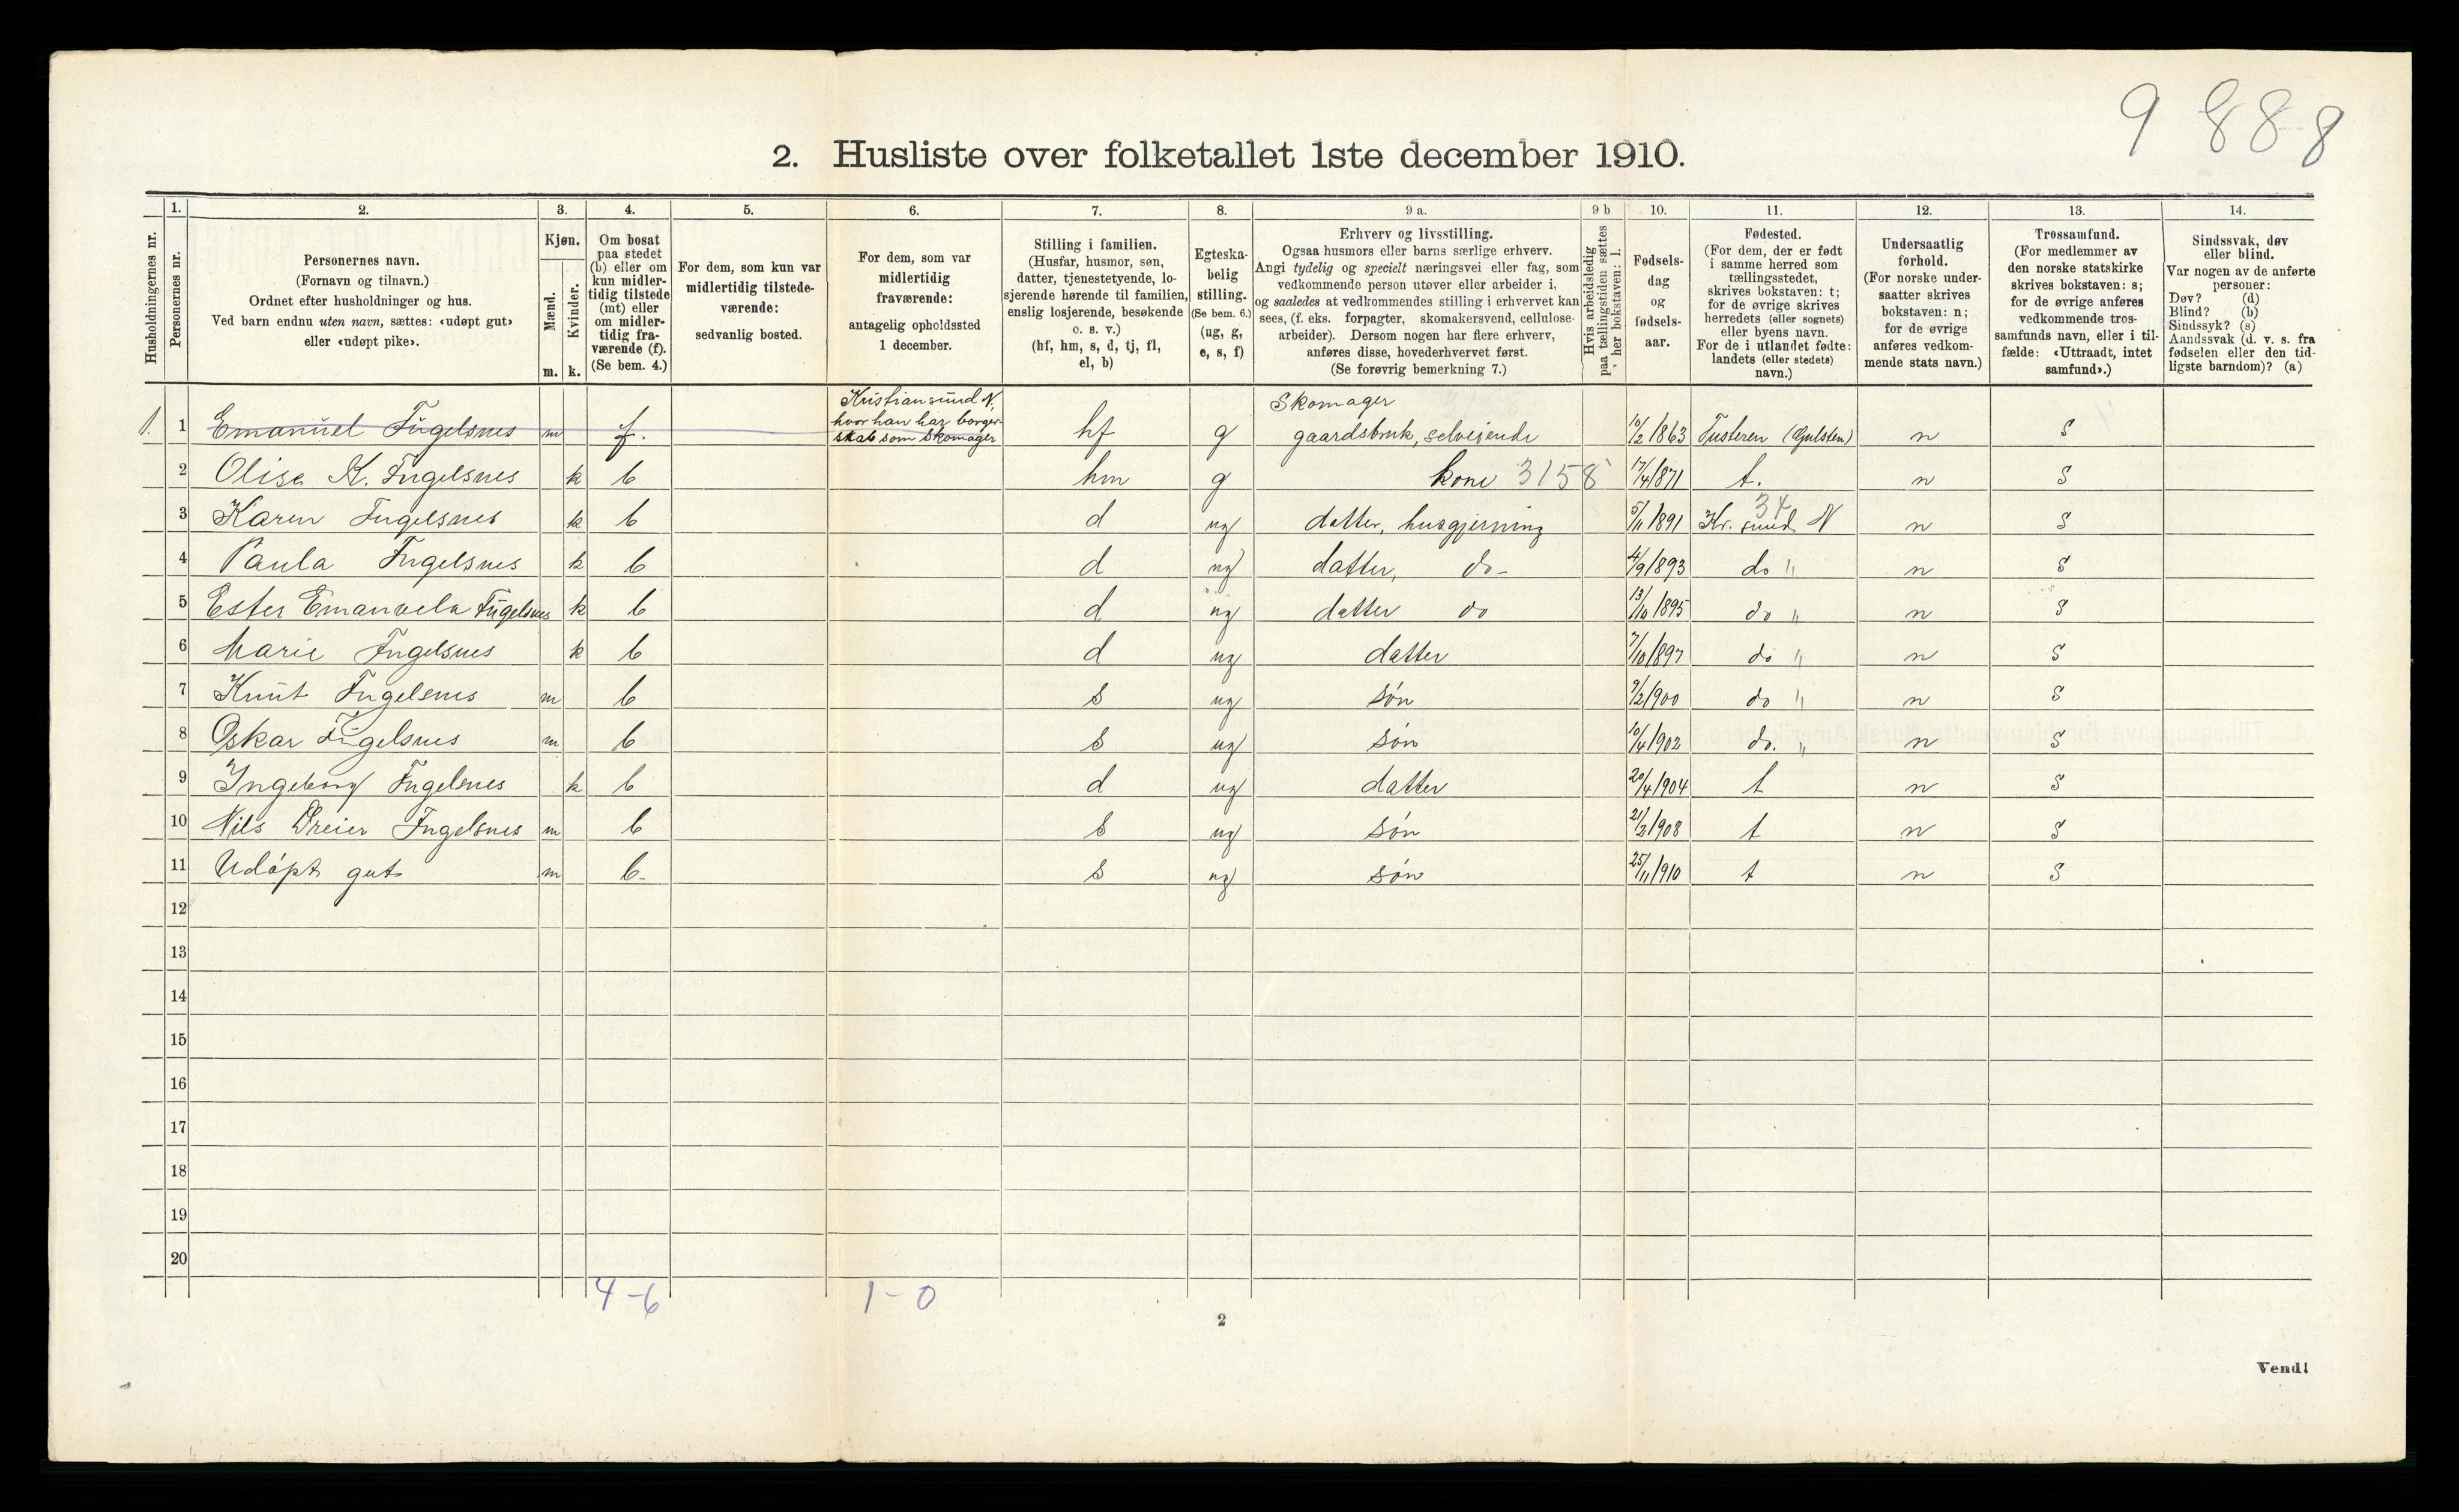 9 888
2. Husliste over folketallet 1ste december 1910.
1. 2. 3. 4. 5. 6. 7. 8. 9 a. 9 b 10. 11. 12. 13. 14.
Husholdningernes nr.
Personernes nr.
Personernes navn.
(Fornavn og tilnavn.)
Ordnet efter husholdninger og hus.
Ved barn endnu uten navn, sættes: «udøpt gut»
eller «udøpt pike».
Kjøn.
Mænd.
Kvinder.
m. k.
Om bosat
paa stedet
(b) eller om
kun midler-
tidig tilstede
(mt) eller
om midler-
tidig fra-
værende (f).
(Se bem. 4.)
For dem, som kun var
midlertidig tilstede-
værende:
sedvanlig bosted.
For dem, som var
midlertidig
fraværende:
antagelig opholdssted
1 december.
Stilling i familien.
(Husfar, husmor, søn,
datter, tjenestetyende, lo-
sjerende hørende til familien,
enslig losjerende, besøkende
o. s. v.)
(hf, hm, s, d, tj, fl,
el, b)
Egteska-
belig
stilling.
(Se bem. 6.)
(ug, g,
e, s, f)
Erhverv og livsstilling.
Ogsaa husmors eller barns særlige erhverv.
Angi tydelig og specielt næringsvei eller fag, som
vedkommende person utøver eller arbeider i,
og saaledes at vedkommendes stilling i erhvervet kan
sees, (f. eks. forpagter, skomakersvend, cellulose-
arbeider). Dersom nogen har flere erhverv,
anføres disse, hovederhvervet først.
(Se forøvrig bemerkning 7.)
Hvis arbeidsledig
paa tællingstiden sættes
her bokstaven: l.
Fødsels-
dag
og
fødsels-
aar.
Fødested.
(For dem, der er født
i samme herred som
tællingsstedet,
skrives bokstaven: t;
for de øvrige skrives
herredets (eller sognets)
eller byens navn.
For de i utlandet fødte:
landets (eller stedets)
navn.)
Undersaatlig
forhold.
(For norske under-
saatter skrives
bokstaven: n;
for de øvrige
anføres vedkom-
mende stats navn.)
Trossamfund.
(For medlemmer av
den norske statskirke
skrives bokstaven: s;
for de øvrige anføres
vedkommende tros-
samfunds navn, eller i til-
fælde: «Uttraadt, intet
samfund».)
Sindssvak, døv
eller blind.
Var nogen av de anførte
personer:
Døv? (d)
Blind? (b)
Sindssyk? (s)
Aandssvak (d. v. s. fra
fødselen eller den tid-
ligste barndom)? (a)
Kristiansund N, Skomager
hvor han har borger-
1. 1 Emanuel Fugelsnes m f. skab som skomager hf g gaardsbruk, selveiende 10/2 1863 Tusteren n S
2 Olise K. Fugelsnes k b hm g kone 3158 17/4 1871 t. n S
34
3 Karen Fugelsnes k b d ug datter, husgjerning 5/11 1891 Kr. sund N n S
4 Paula Fugelsnes k b d ug datter, do- 4/9 1893 do " n S
5 Ester Emanuela Fugelsnes k b d ug datter do 13/10 1895 do " n S
6 Marie Fugelsnes k b d ug datter 7/10 1897 do " n S
7 Knut Fugelsnes m b s ug søn 9/2 1900 do " n S
8 Oskar Fugelsnes m b s ug søn 10/4 1902 do. " n S
9 Ingeborg Fugelsnes k b d ug datter 20/4 1904 t n S
10 Nils Dreier Fugelsnes m b s ug søn 21/2 1908 t n S
11 Udøpt gut m b- s ug søn 25/11 1910 t n S
12
13
14
15
16
17
18
19
20
4-6 1-0
2
Vend!